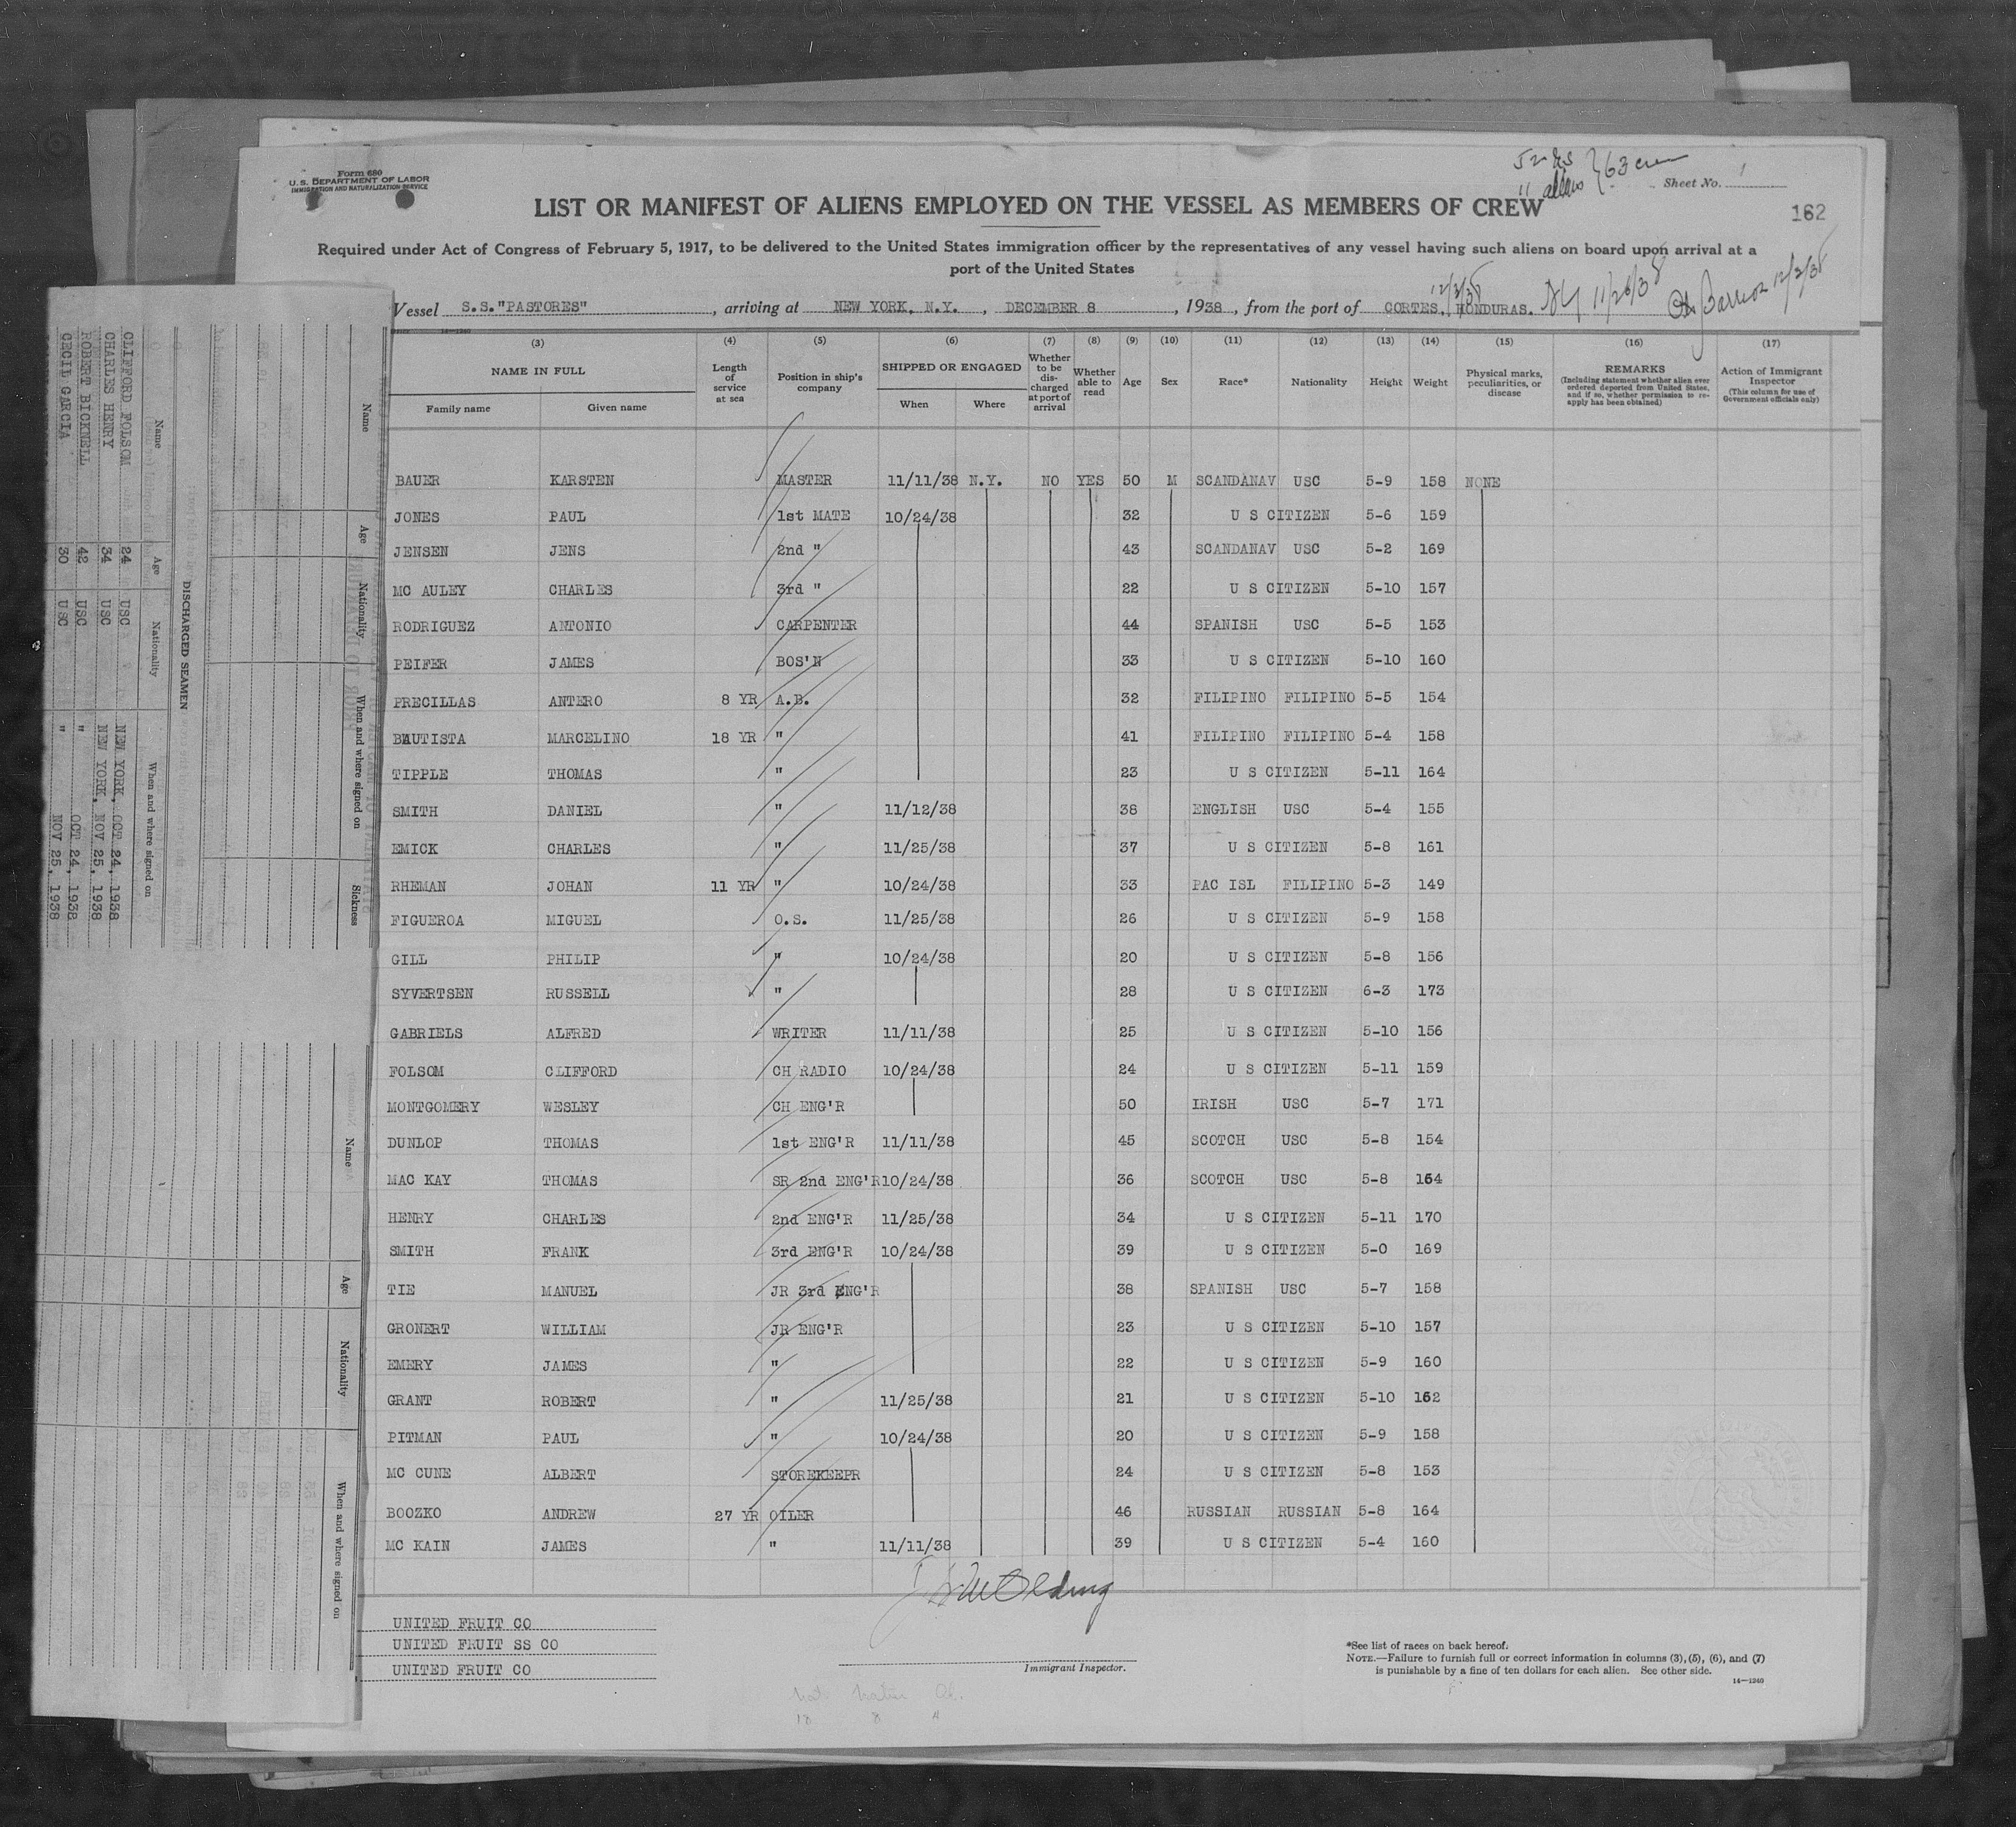 Form 680
U.S. DEPARTMENT OF LABOR
IMMIGRATION AND NATURALIZATION SERVICE
52
11 aliens } 63 crew
Sheet No. 1
162
LIST OR MANIFEST OF ALIENS EMPLOYED ON THE VESSEL AS MEMBERS OF CREW
Required under Act of Congress of February 5, 1917, to be delivered to the United States immigration officer by the representatives of any vessel having such aliens on board upon arrival at a
port of the United States
Vessel S.S."PASTORES", arriving at NEW YORK, N.Y., DECEMBER 8, 1938, from the port of CORTES, HONDURAS. 11/26/38 Barrios 12/2/38
14-1240
(3) (4) (5) (6) (7) (8) (9) (10) (11) (12) (13) (14) (15) (16) (17)
NAME IN FULL
Family name Given name
Length of service at sea
Position in ship's company
SHIPPED OR ENGAGED
When Where
Whether to be discharged at port of arrival
Whether able to read
Age
Sex
Race*
Nationality
Height
Weight
Physical marks, peculiarities, or disease
REMARKS
(Including statement whether alien ever ordered deported from United States, and if so, whether permission to reapply has been obtained)
Action of Immigrant Inspector
(This column for use of Government officials only)
BAUER KARSTEN MASTER 11/11/38 N.Y. NO YES 50 M SCANDANAV USC 5-9 158 NONE
JONES PAUL 1st MATE 10/24/38 32 U S CITIZEN 5-6 159
JENSEN JENS 2nd " 43 SCANDANAV USC 5-2 169
MC AULEY CHARLES 3rd " 22 U S CITIZEN 5-10 157
RODRIGUEZ ANTONIO CARPENTER 44 SPANISH USC 5-5 153
PEIFER JAMES BOS'N 33 U S CITIZEN 5-10 160
PRECILLAS ANTERO 8 YR A.B. 32 FILIPINO FILIPINO 5-5 154
BAUTISTA MARCELINO 18 YR " 41 FILIPINO FILIPINO 5-4 158
TIPPLE THOMAS " 23 U S CITIZEN 5-11 164
SMITH DANIEL " 11/12/38 38 ENGLISH USC 5-4 155
EMICK CHARLES " 11/25/38 37 U S CITIZEN 5-8 161
RHEMAN JOHAN 11 YR " 10/24/38 33 PAC ISL FILIPINO 5-3 149
FIGUEROA MIGUEL O.S. 11/25/38 26 U S CITIZEN 5-9 158
GILL PHILIP " 10/24/38 20 U S CITIZEN 5-8 156
SYVERTSEN RUSSELL " 28 U S CITIZEN 6-3 173
GABRIELS ALFRED WRITER 11/11/38 25 U S CITIZEN 5-10 156
FOLSOM CLIFFORD CH RADIO 10/24/38 24 U S CITIZEN 5-11 159
MONTGOMERY WESLEY CH ENG'R 50 IRISH USC 5-7 171
DUNLOP THOMAS 1st ENG'R 11/11/38 45 SCOTCH USC 5-8 154
MAC KAY THOMAS SR 2nd ENG'R 10/24/38 36 SCOTCH USC 5-8 164
HENRY CHARLES 2nd ENG'R 11/25/38 34 U S CITIZEN 5-11 170
SMITH FRANK 3rd ENG'R 10/24/38 39 U S CITIZEN 5-0 169
TIE MANUEL JR 3rd ENG'R 38 SPANISH USC 5-7 158
GRONERT WILLIAM JR ENG'R 23 U S CITIZEN 5-10 157
EMERY JAMES " 22 U S CITIZEN 5-9 160
GRANT ROBERT " 11/25/38 21 U S CITIZEN 5-10 162
PITMAN PAUL " 10/24/38 20 U S CITIZEN 5-9 158
MC CUNE ALBERT STOREKEEPR 24 U S CITIZEN 5-8 153
BOOZKO ANDREW 27 YR OILER 46 RUSSIAN RUSSIAN 5-8 164
MC KAIN JAMES " 11/11/38 39 U S CITIZEN 5-4 160
UNITED FRUIT CO
UNITED FRUIT SS CO
UNITED FRUIT CO
Immigrant Inspector.
*See list of races on back hereof.
NOTE.—Failure to furnish full or correct information in columns (3), (5), (6), and (7)
is punishable by a fine of ten dollars for each alien. See other side.
14—1240
Name Age Nationality When and where signed on Sickness
DISCHARGED SEAMEN
Name Age Nationality When and where signed on
CLIFFORD FOLSOM 24 USC NEW YORK, OCT 24, 1938
CHARLES HENRY 34 USC NEW YORK, NOV 25, 1938
ROBERT BICKNELL 42 USC " OCT 24, 1938
CECIL GARCIA 30 USC " NOV 25, 1938
Name Age Nationality When and where signed on